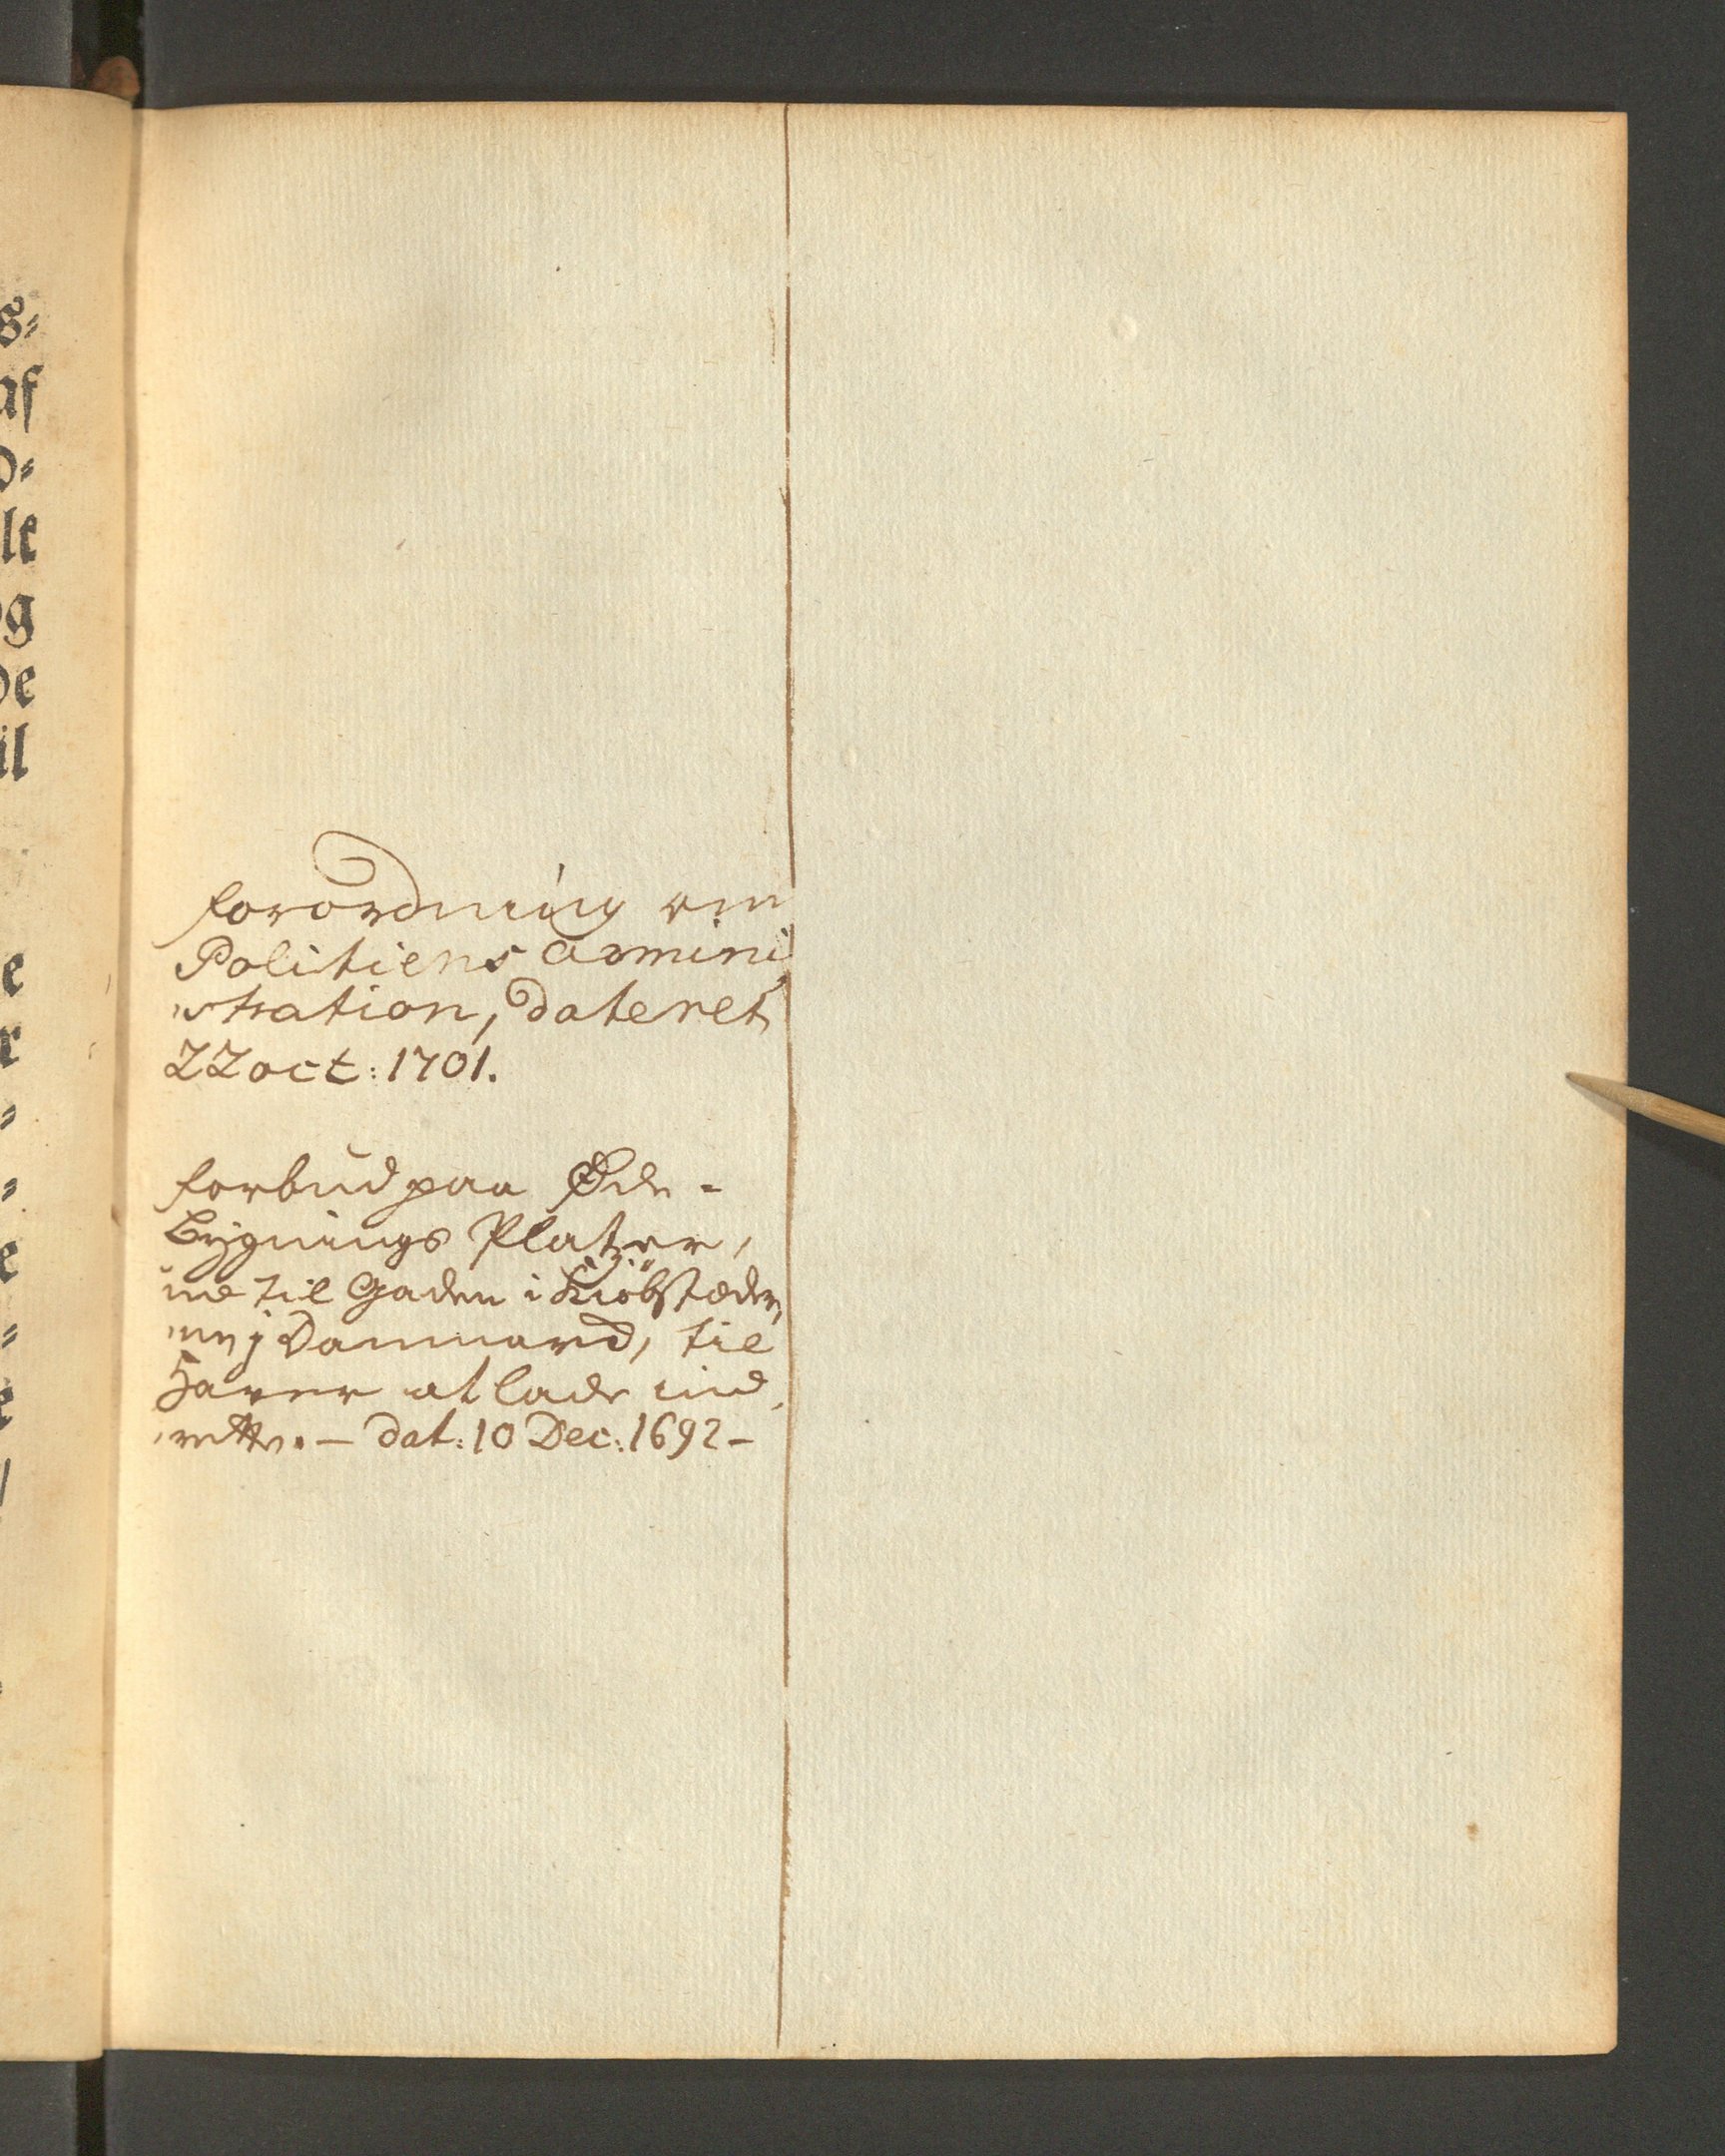 s⸗
af
o⸗
le
og
de
il
e
r
⸗
⸗
e
⸗
e
/
forordning om
Politiens admini
stration, dateret
22 oct: 1701.
forbud paa Øde-
Bygnings Platzer,
ud til Gaden i Kiøbstæder,
ne j Danmard, til
Haver at lade ind,
rette. – dat: 10 Dec: 1692 –